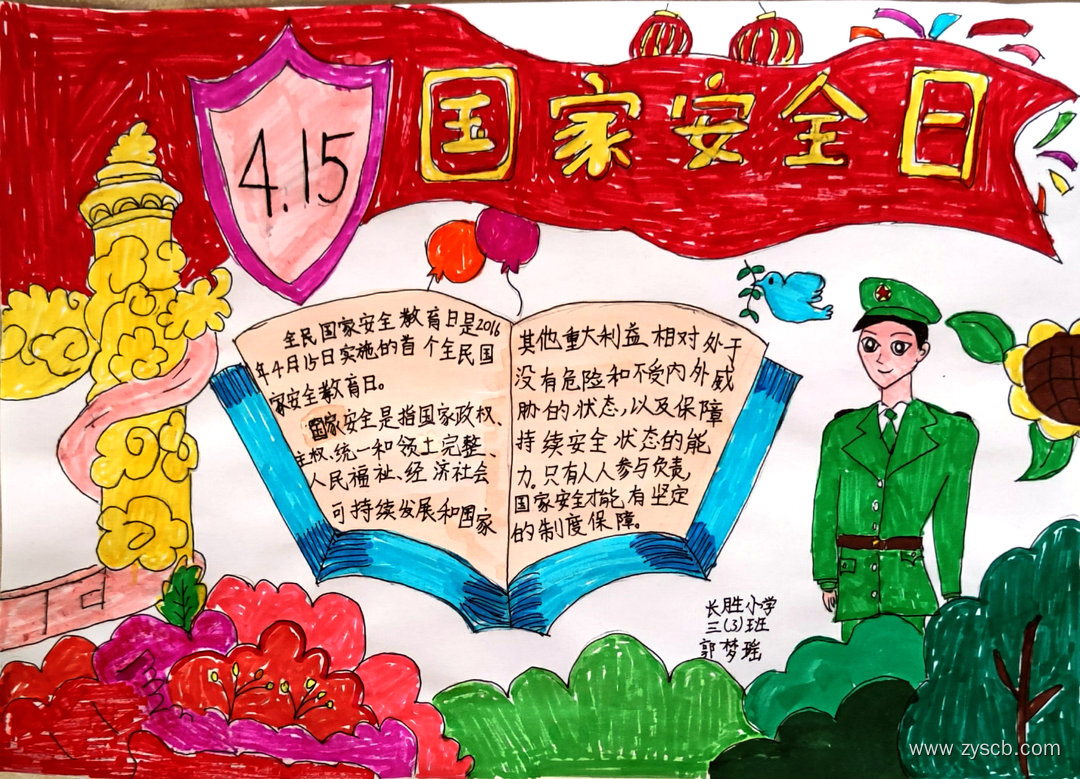 4.15
国家安全日
全民国家安全教育日是2016
年4月15日实施的首个全民国
家安全教育日。
国家安全是指国家政权、
主权、统一和领土完整、
人民福祉、经济社会
可持续发展和国家
其他重大利益相对处于
没有危险和不受内外威
胁的状态,以及保障
持续安全状态的能
力。只有人人参与负责,
国家安全才能有坚定
的制度保障。
长胜小学
三(3)班
郭梦瑶
www.zyscb.com